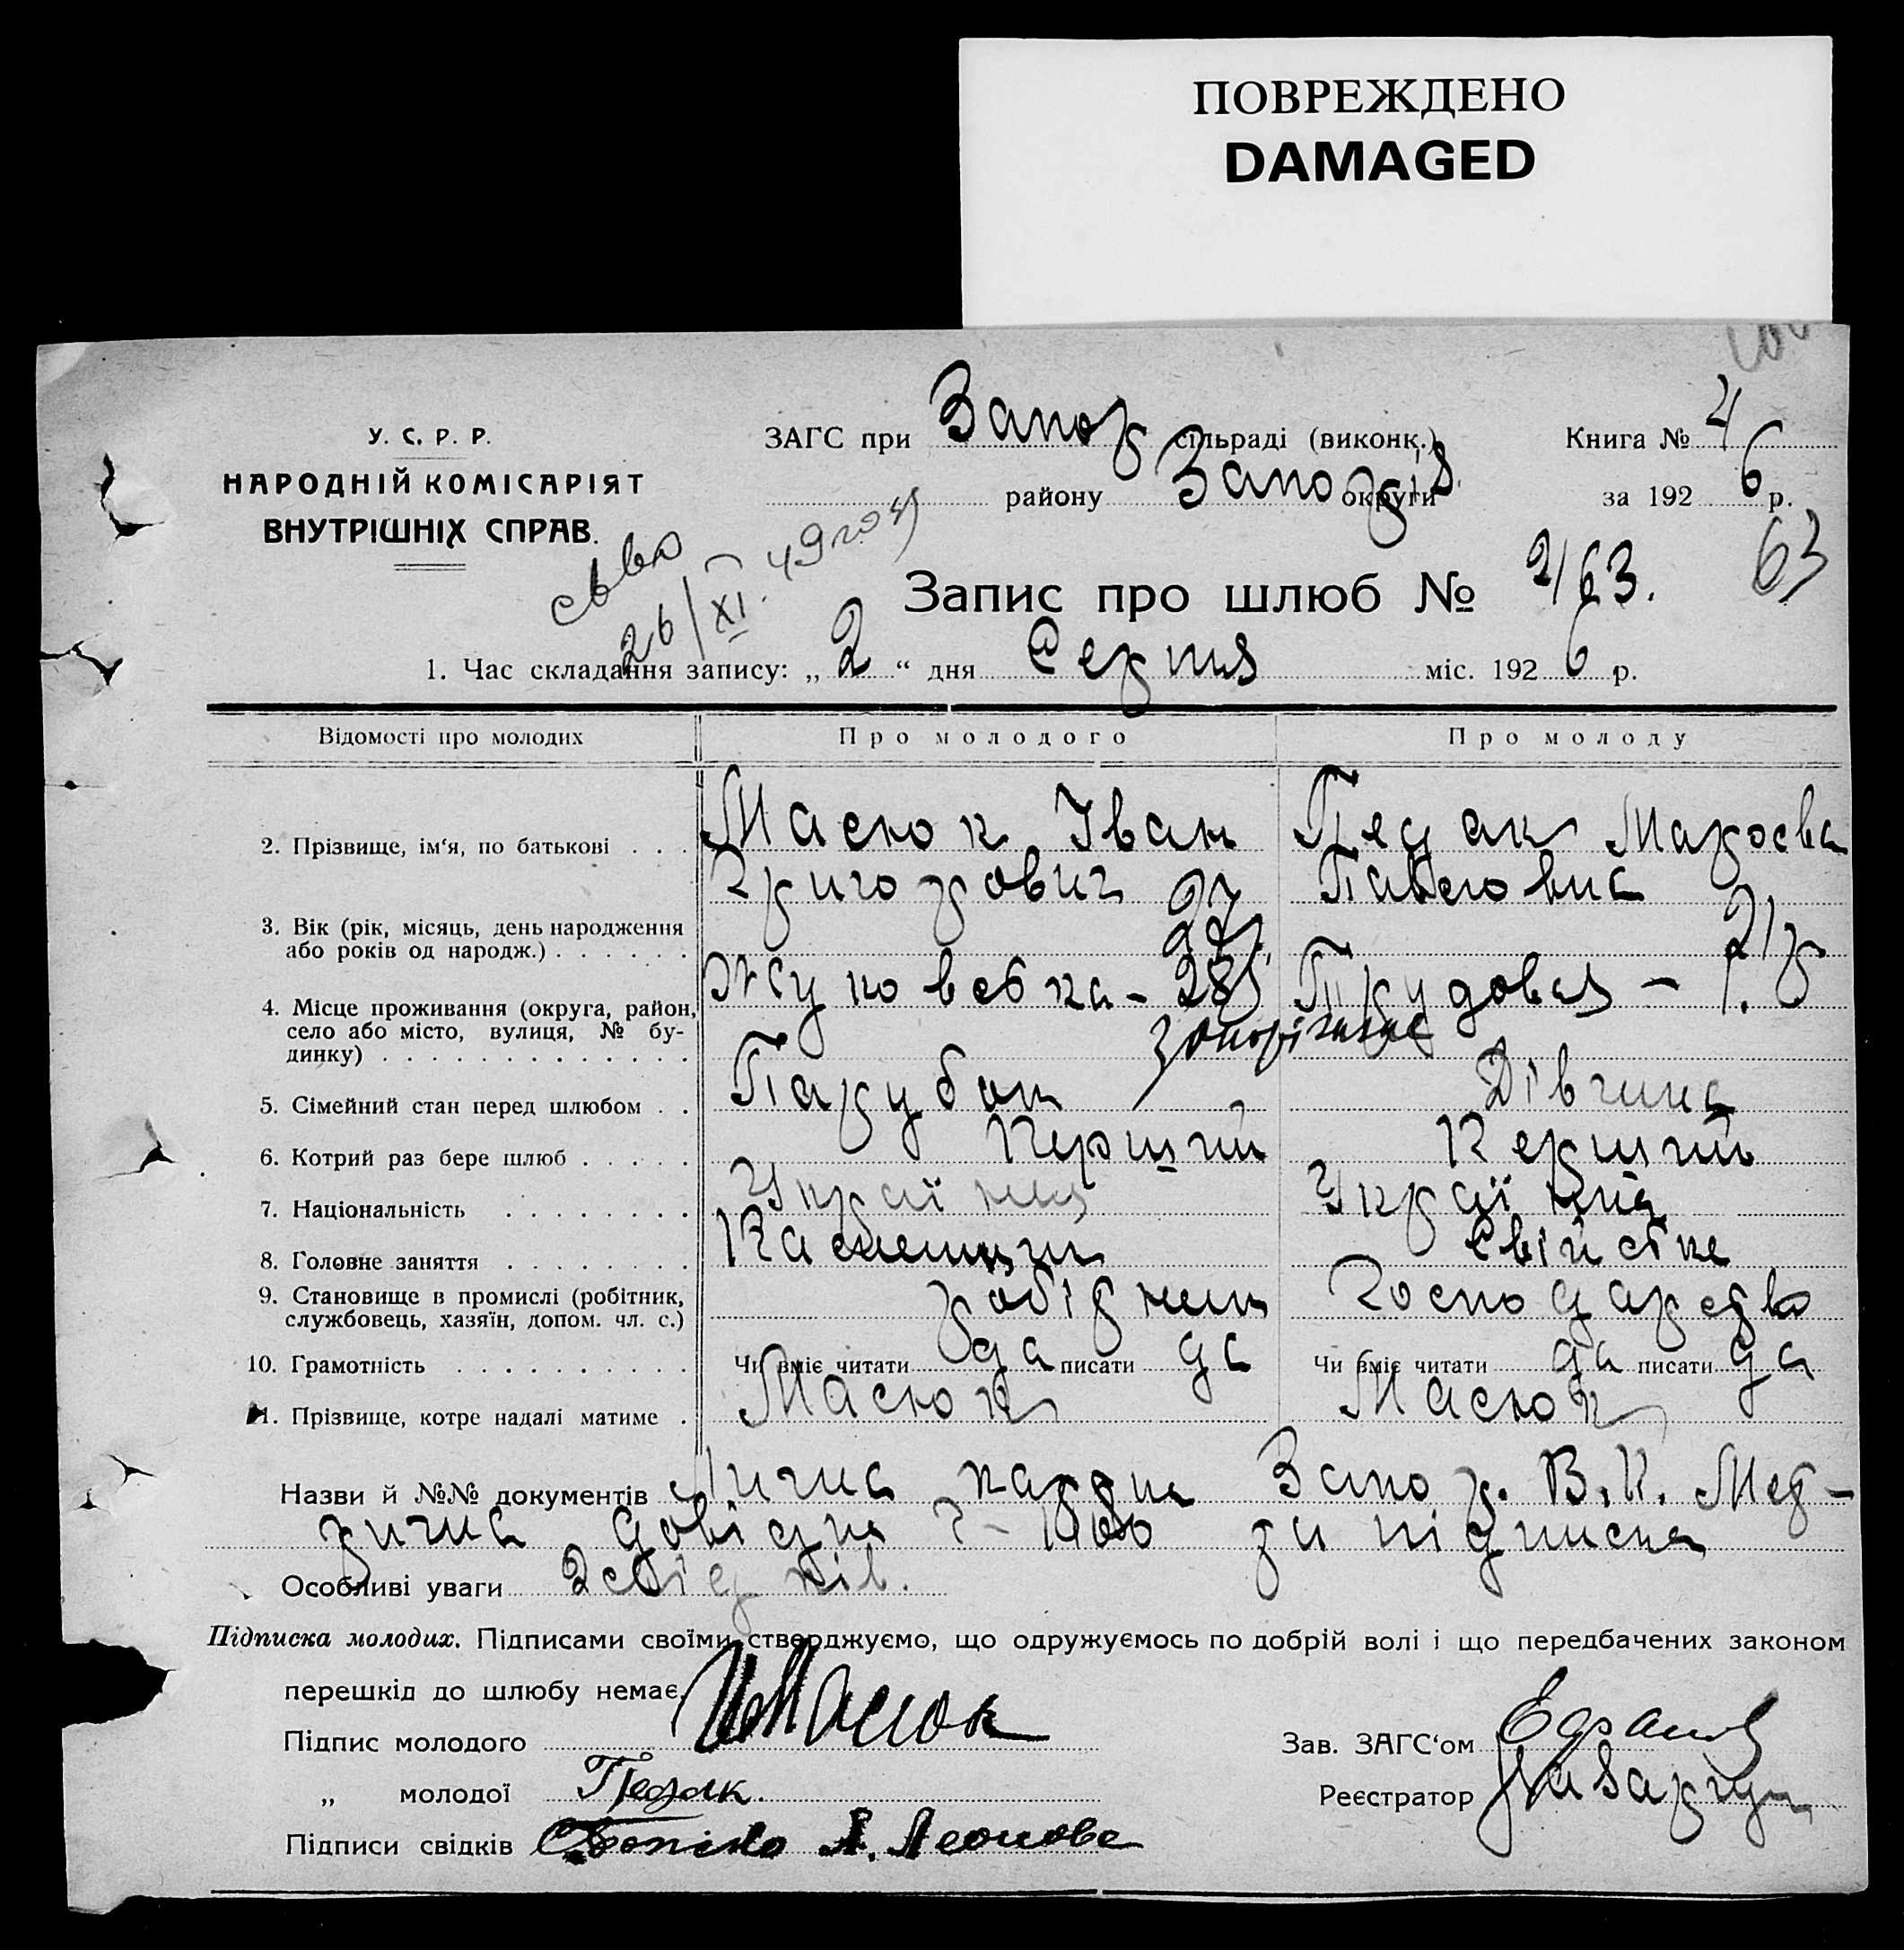 ПОВРЕЖДЕНО
DAMAGED
У. С. Р. Р.
НАРОДНІЙ КОМІСАРІЯТ
ВНУТРІШНІХ СПРАВ.
ЗАГС при Запор сільраді (виконк.) Книга № 4
району Запоріз округи за 192 6 р.
26/XI 49 году
Запис про шлюб № 2163. 63
1. Час складання запису: „ 2 “ дня Серпня міс. 192 6 р.
Відомості про молодих Про молодого Про молоду
2. Прізвище, ім‘я, по батькові . . . Масюк Іван Педак
Григорович Павловна
3. Вік (рік, місяць, день народження 27 21 р
або років од народж.) . . . . . .
4. Місце проживання (округа, район, Жуковська - Трудовая - 1.
село або місто, вулиця, № бу-
динку) . . . . . . . . . . . . . Запоріжжє
5. Сімейний стан перед шлюбом . . Парубок Дівчина
6. Котрий раз бере шлюб . . . . . Перший Перший
7. Національність . . . . . . . . Україн
8. Головне заняття . . . . . . . . Каменщик Свійське
9. Становище в промислі (робітник, робідник Господарство
службовець, хазяїн, допом. чл. с.)
10. Грамотність . . . . . . . . . . Чи вміє читати да писати да Чи вміє читати да писати да
11. Прізвище, котре надалі матиме . Масюк Масюк
Назви й №№ документів Лична картка Запор. В.К. Мед-
зична довідка та підписка
Особливі уваги 2 свідків.
Підписка молодих. Підписами своїми стверджуємо, що одружуємось по добрій волі і що передбачених законом
перешкід до шлюбу немає.
Підпис молодого ИМасюк Зав. ЗАГС‘ом
„ молодої Педак. Реєстратор
Підписи свідків А. Леонова